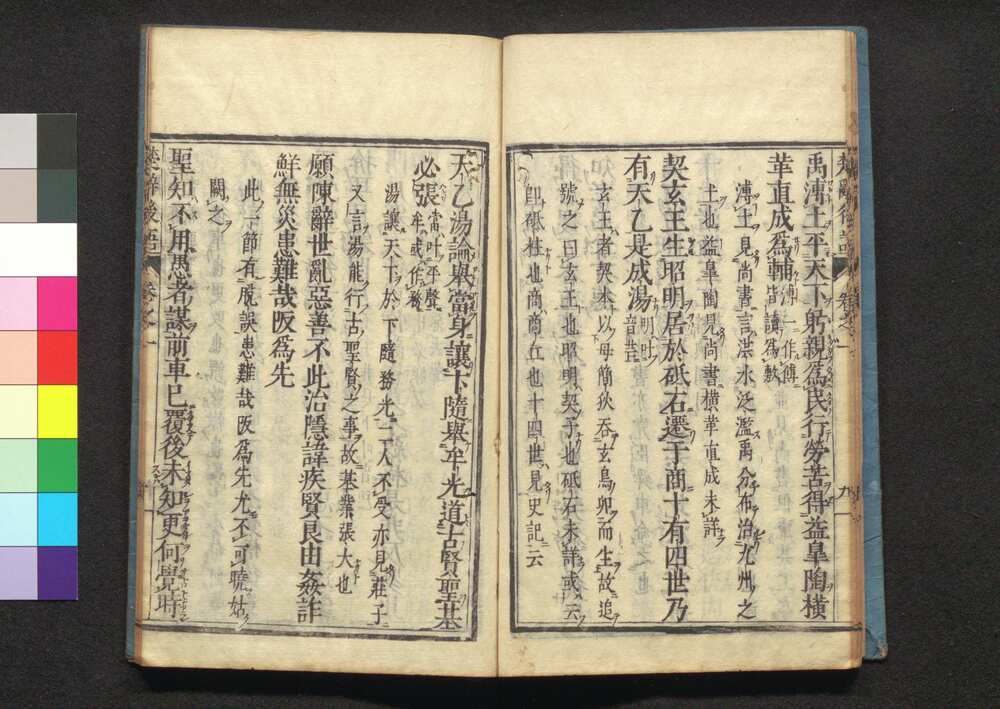 禹溥土平天下躬親爲民行勞苦得益皐陶橫
革直成爲輔溥一作傅皆讀爲敷
溥土見尚書言洪水泛濫禹分布治九州之
土也益皐陶見尚書橫革直成未詳
契玄王生昭明居於砥石遷于商十有四世乃
有天乙是成湯明叶音芒
玄王者契本以母簡狄吞玄鳥卵而生故追
號之曰玄王也昭明契子也砥石未詳或云
卽砥柱也商商丘也十四世見史記云
天乙湯論舉當身讓卞隨舉牟光道古賢聖基
必張當叶平聲牟或作務
湯讓天下於下隨務光二人不受亦見莊子
又言湯能行古聖賢之事故基業張大也
願陳辭世亂惡善不此治隱諱疾賢良由姦詐
鮮無災患難哉阪爲先
此一節有脫誤患難哉阪爲先尤不可曉姑
闕之
聖知不用愚者謀前車已覆後未知更何覺時